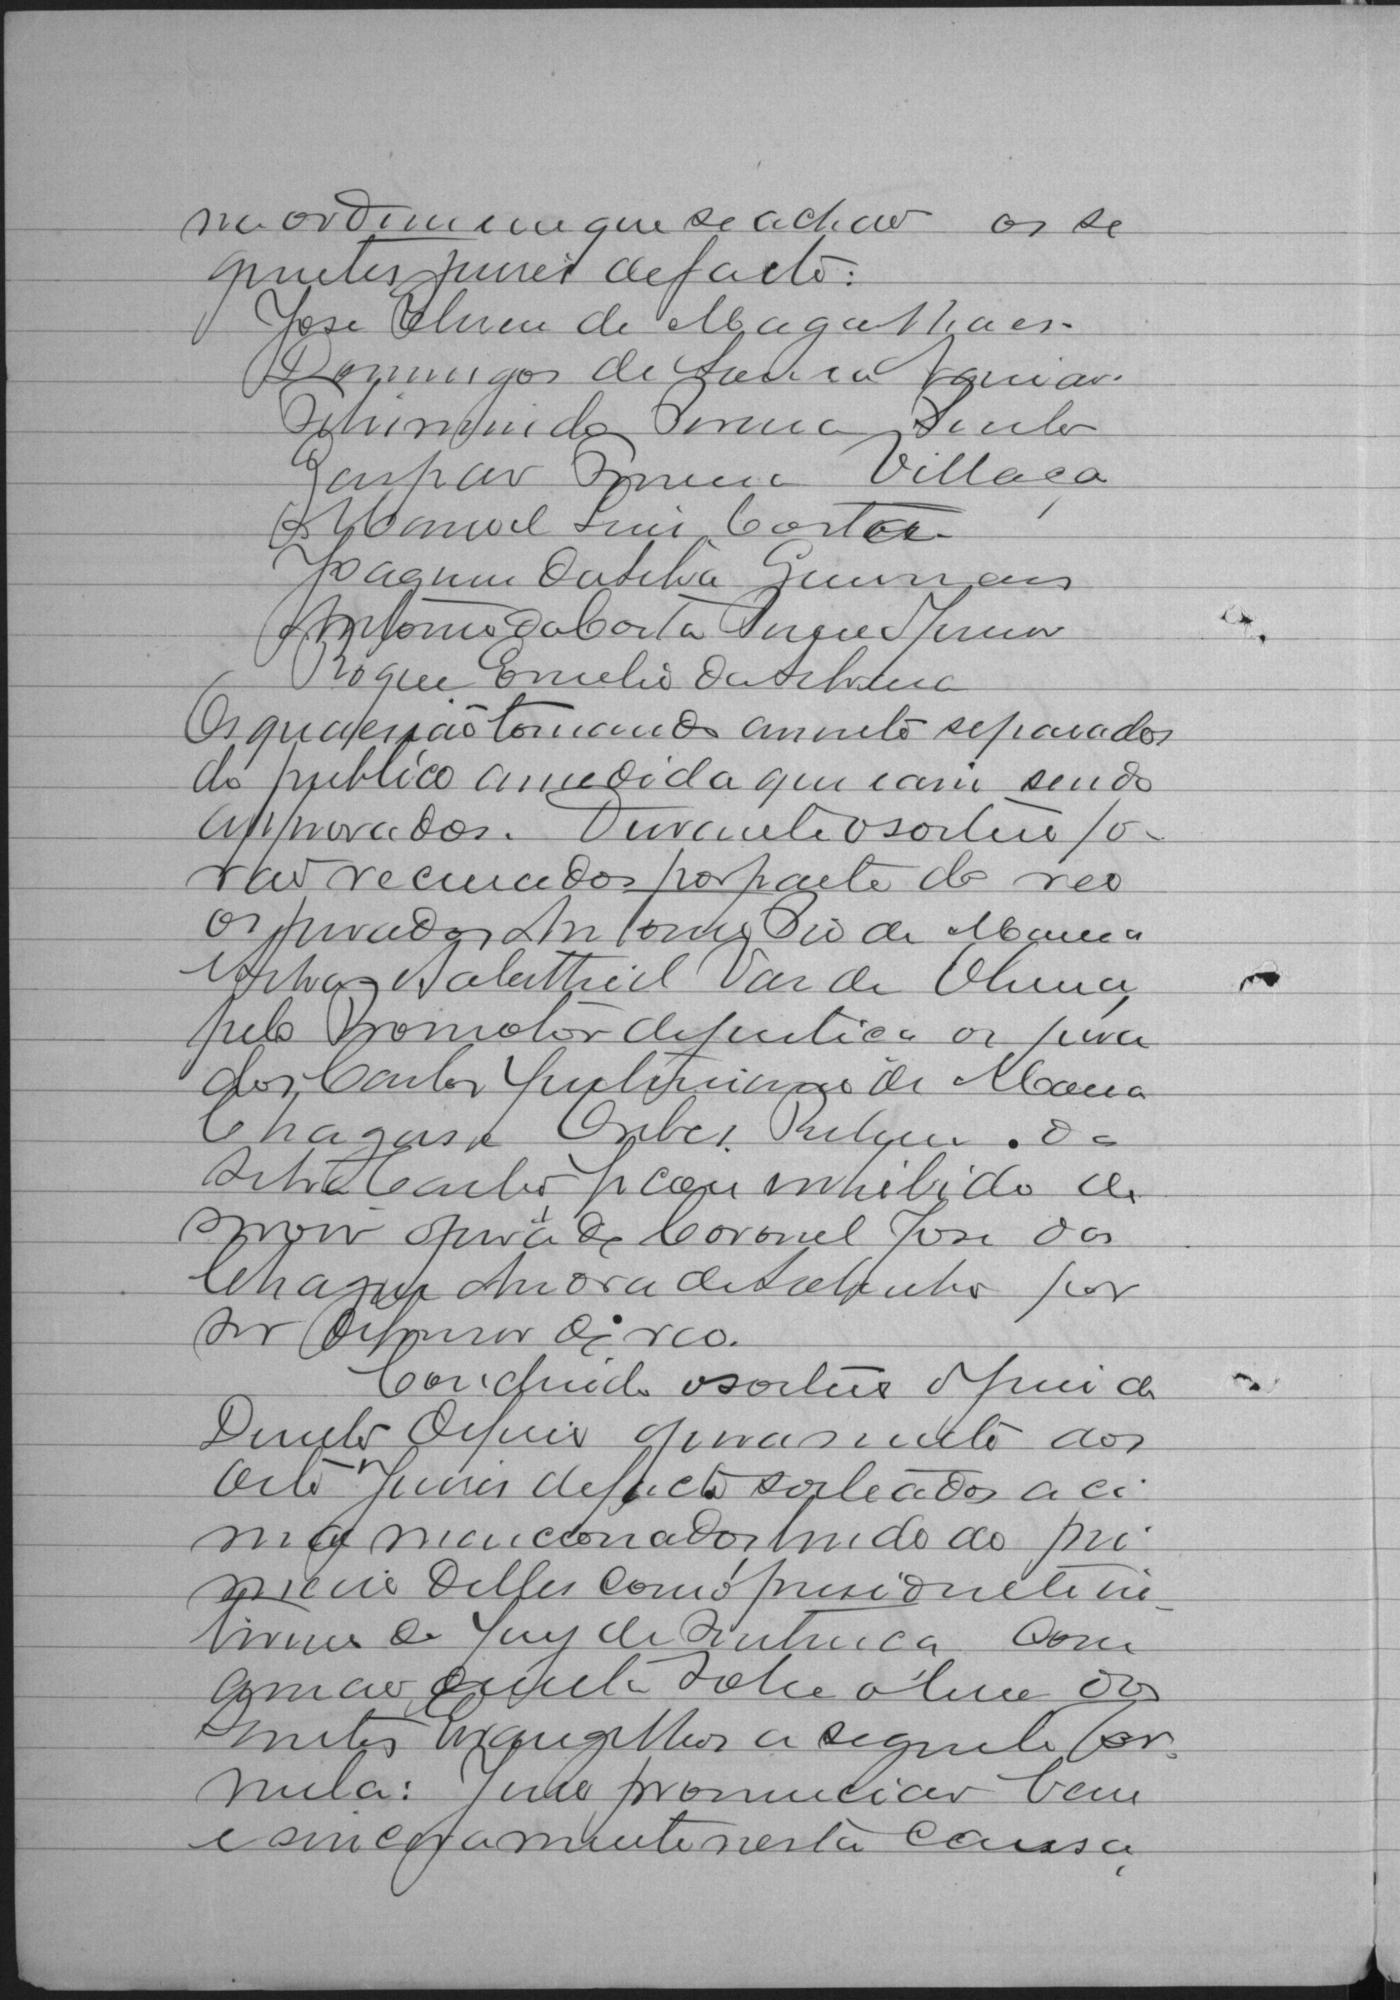 na ordem em que se achão os se
guintes juizes de facto:
José Elizeu de Magalhaes.
Domingos de Souza
Pereira Pinto
Gaspar Pereira Villaça
Manoel Luis Costa
Joaquim da Silva Guimarães
Antonio da Costa Junior
Roque Emilio da Silveira
Os quaes irão tomando assento separados
do publico a medida que eam sendo
approvados. Durante o sorteio fo-
rão recusados por parte do reo
os jurados Antonio Pio de Maria
e Salathiel Vaz de Oliveira,
pelo Promotor de justiça os jura
dos Carlos Justiniano de
Chagas e da
Silva Castro, ficou inhibido de
servir o jurado Coronel José das
Chagas Andrade Sobrinho por
ser defensor do reo.
Concluido o sorteio o Juiz de
Direito deferio o juramento aos
oito Juizes de facto sorteados aci
ma mencionados, lendo ao pri
meiro delles como presidente in-
terino do Jury de Sentença com
a mão direita sobre o livro dos
Santos Evangelhos a seguinte for-
mula: Juro pronunciar bem
e sinceramente nesta causa,